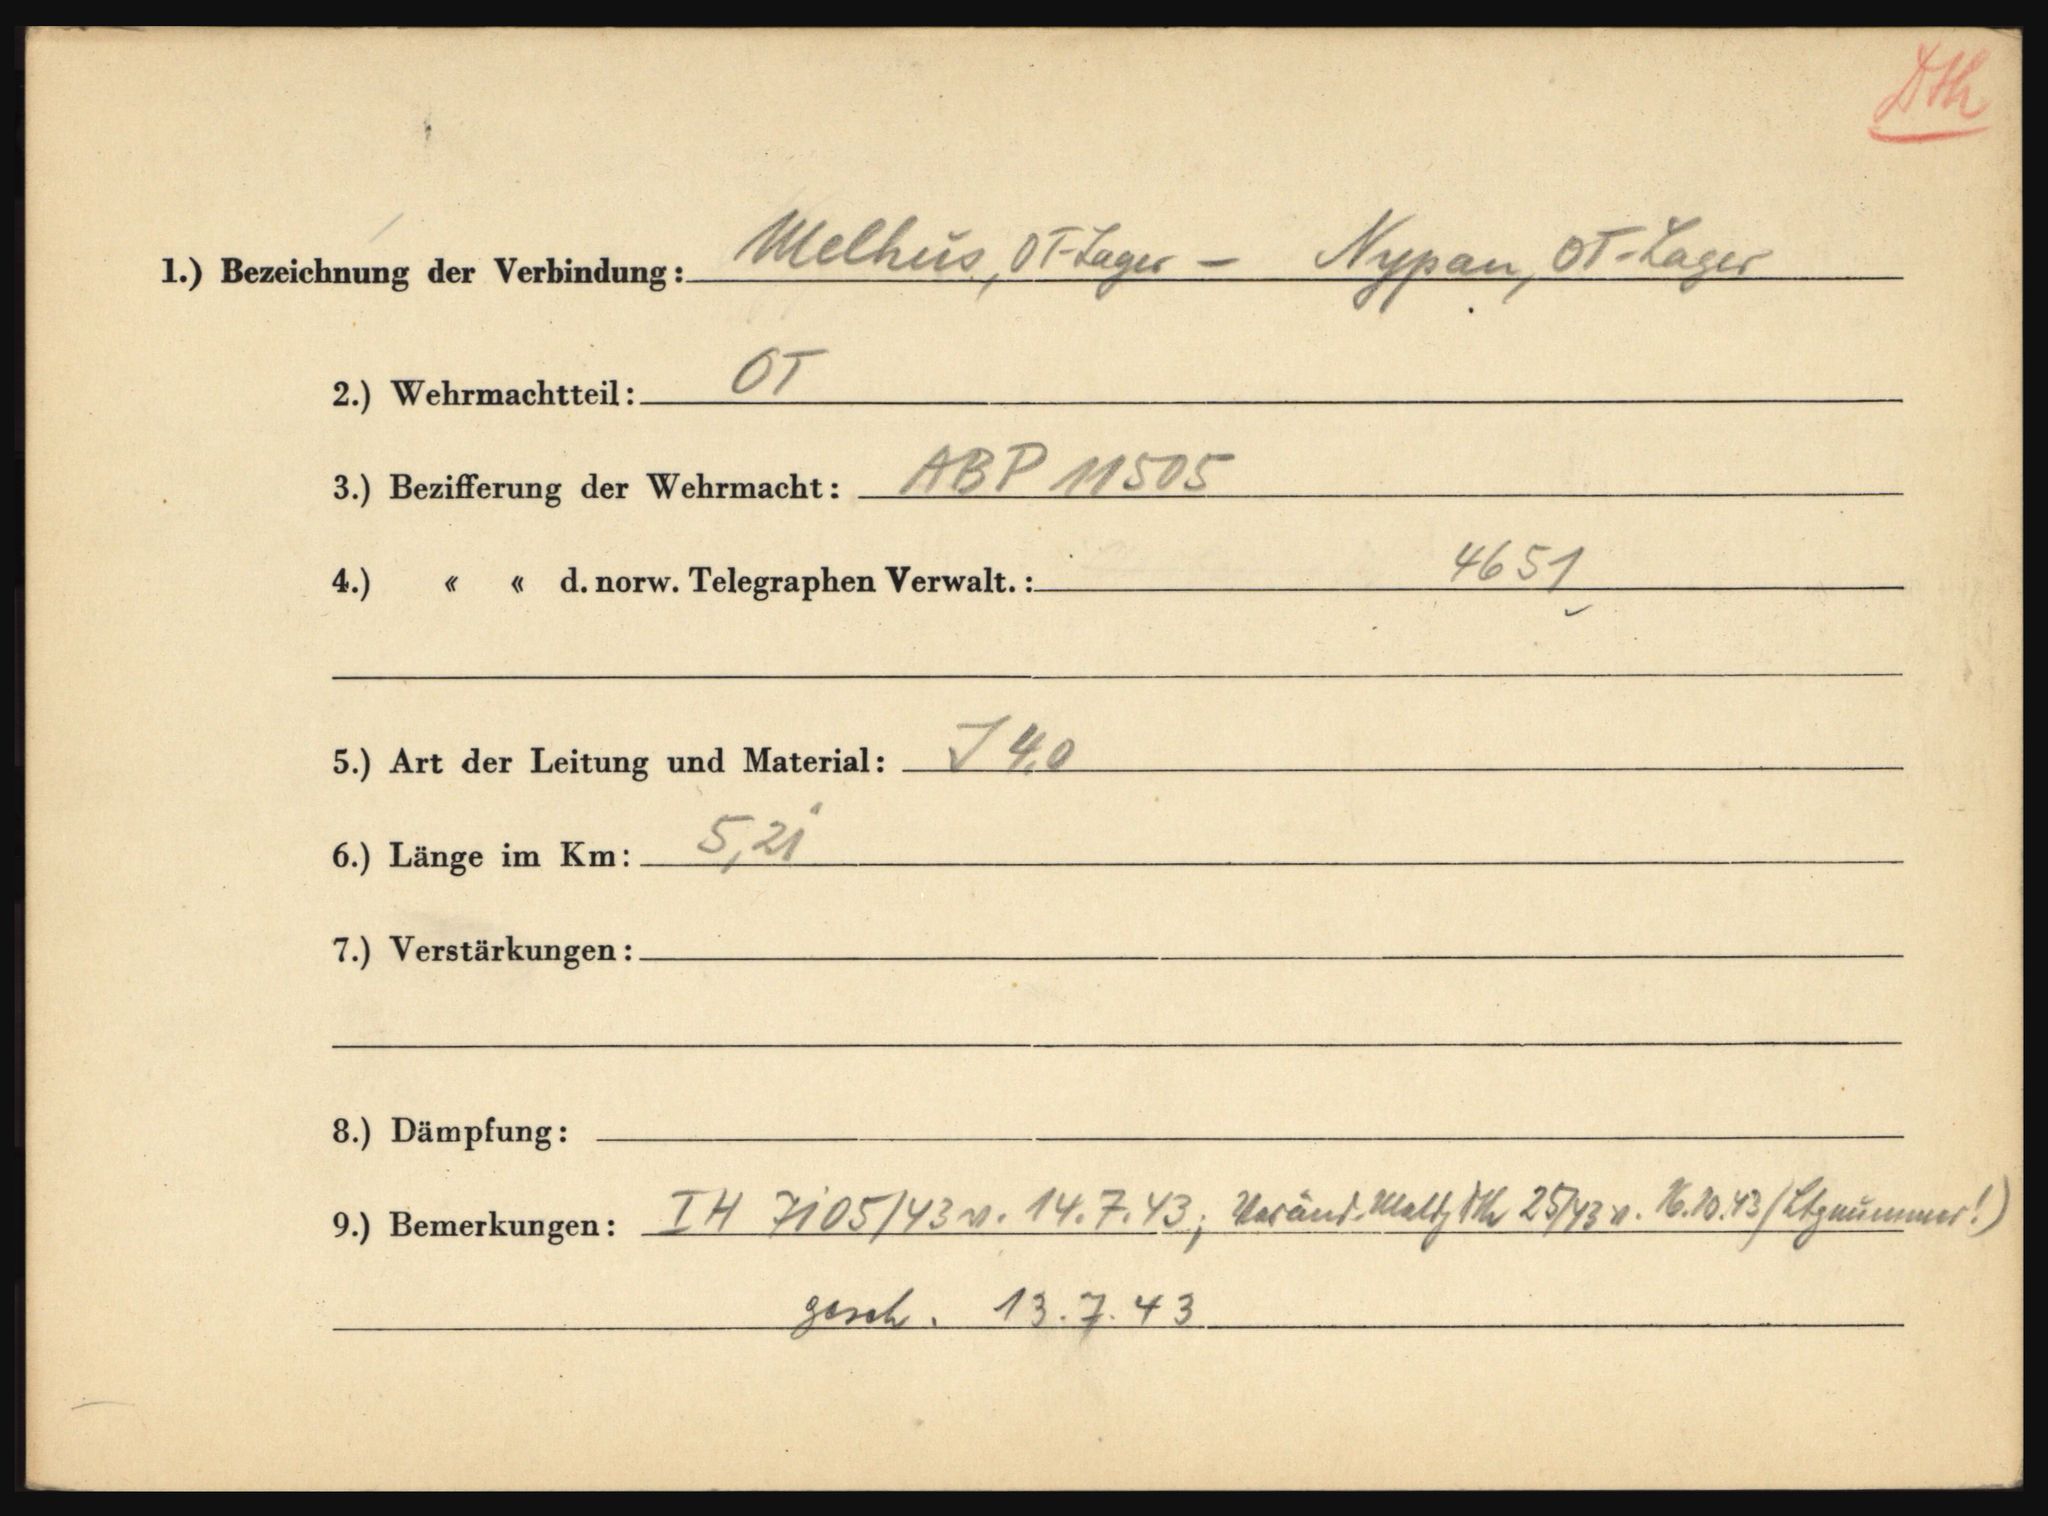 Dth
1.) Bezeichnung der Verbindung: Melhus, OT-Lager – Nypan, OT-Lager
2.) Wehrmachtteil: OT
3.) Bezifferung der Wehrmacht: ABP 11505
4.) « « d. norw. Telegraphen Verwalt.: 4651
5.) Art der Leitung und Material: J 4,0
6.) Länge im Km: 5,2
7.) Verstärkungen:
8.) Dämpfung:
9.) Bemerkungen: IH 7105/43 v. 14.7.43; Veränd. Meldg Dth 25/43 v. 16.10.43 (Ltgnummer!)
gesch. 13.7.43